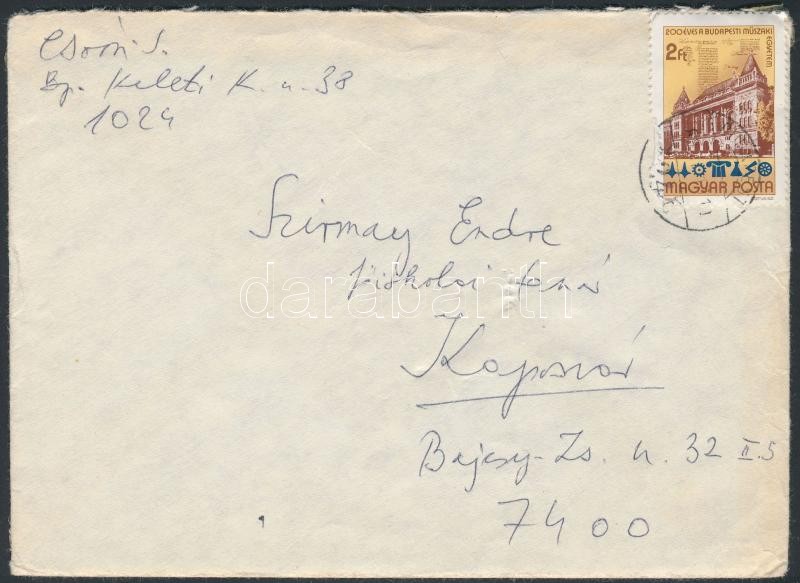 Csoóri S.
Bp. Keleti K. u. 38
1024
200 ÉVES A BUDAPESTI MŰSZAKI
EGYETEM
2Ft
MAGYAR POSTA
Szirmay Endre
főiskolai tanár
Kaposvár
Bajcsy-Zs. u. 32 II.5
7400
darabanth